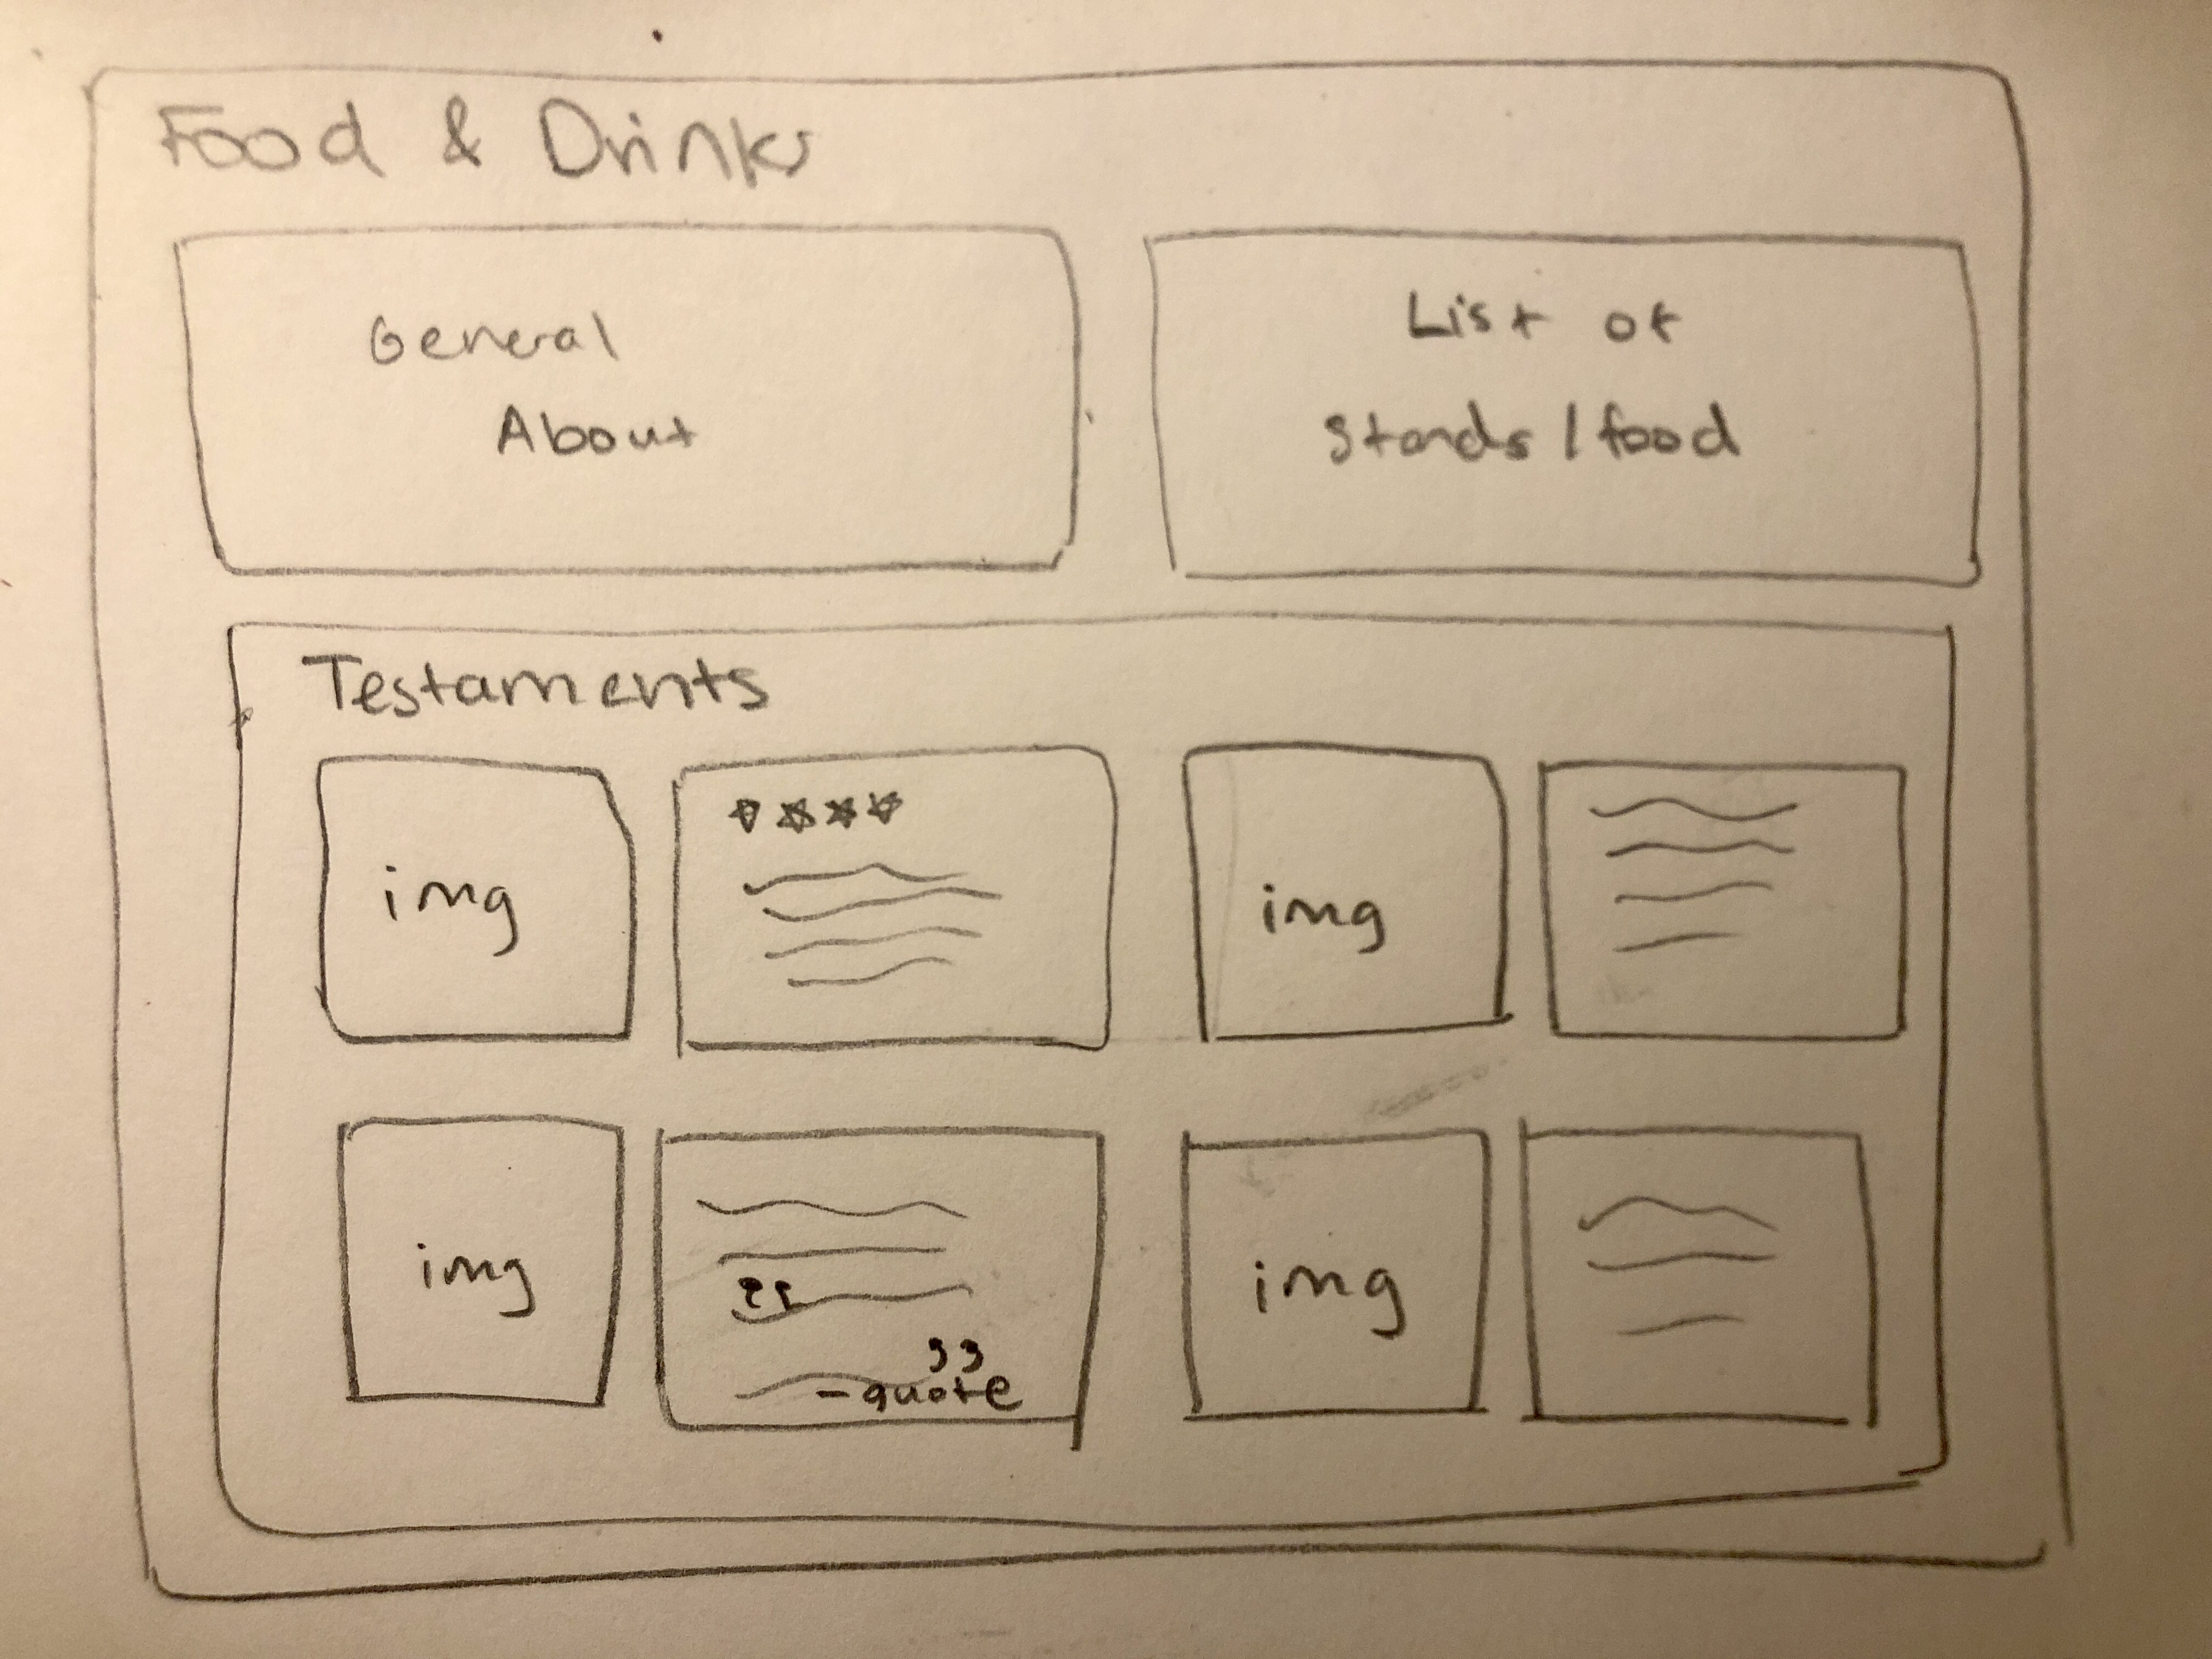 Food & Drinks
General
About
List of
Stands / food
Testaments
img
img
img
img
"
"
-quote